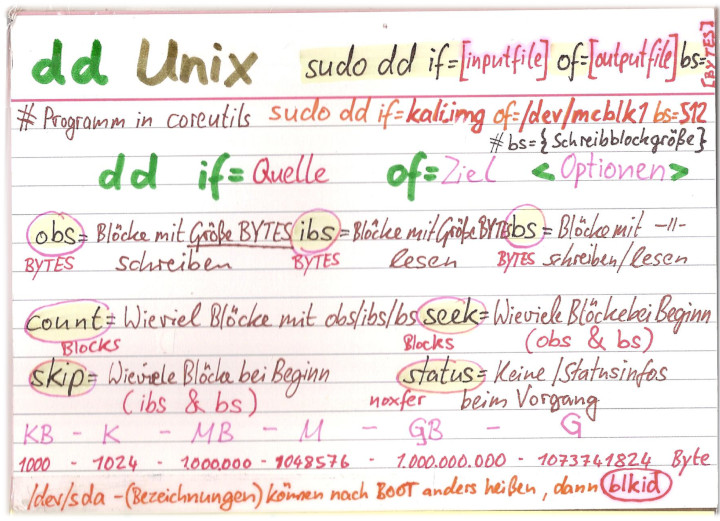 dd Unix sudo dd if=[inputfile] of=[outputfile] bs=[BYTES]
# Programm in coreutils sudo dd if=kali.img of=/dev/mcblk1 bs=512
# bs={Schreibblockgröße}
dd if=Quelle of=Ziel <Optionen>
obs= Blöcke mit Größe BYTES ibs=Blöcke mit Größe BYTES bs= Blöcke mit -11-
BYTES schreiben BYTES lesen BYTES schreiben/lesen
count= Wieviel Blöcke mit obs/ibs/bs seek=Wieviele Blöcke bei Beginn
Blocks Blocks (obs & bs)
skip= Wieviele Blöcke bei Beginn status= Keine/Statusinfos
(ibs & bs) noxfer beim Vorgang
KB - K - MB - M - GB - G
1000 - 1024 - 1000.000 - 1048576 - 1.000.000.000 - 1073741824 Byte
/dev/sda -(Bezeichnungen) können nach BOOT anders heißen, dann blkid